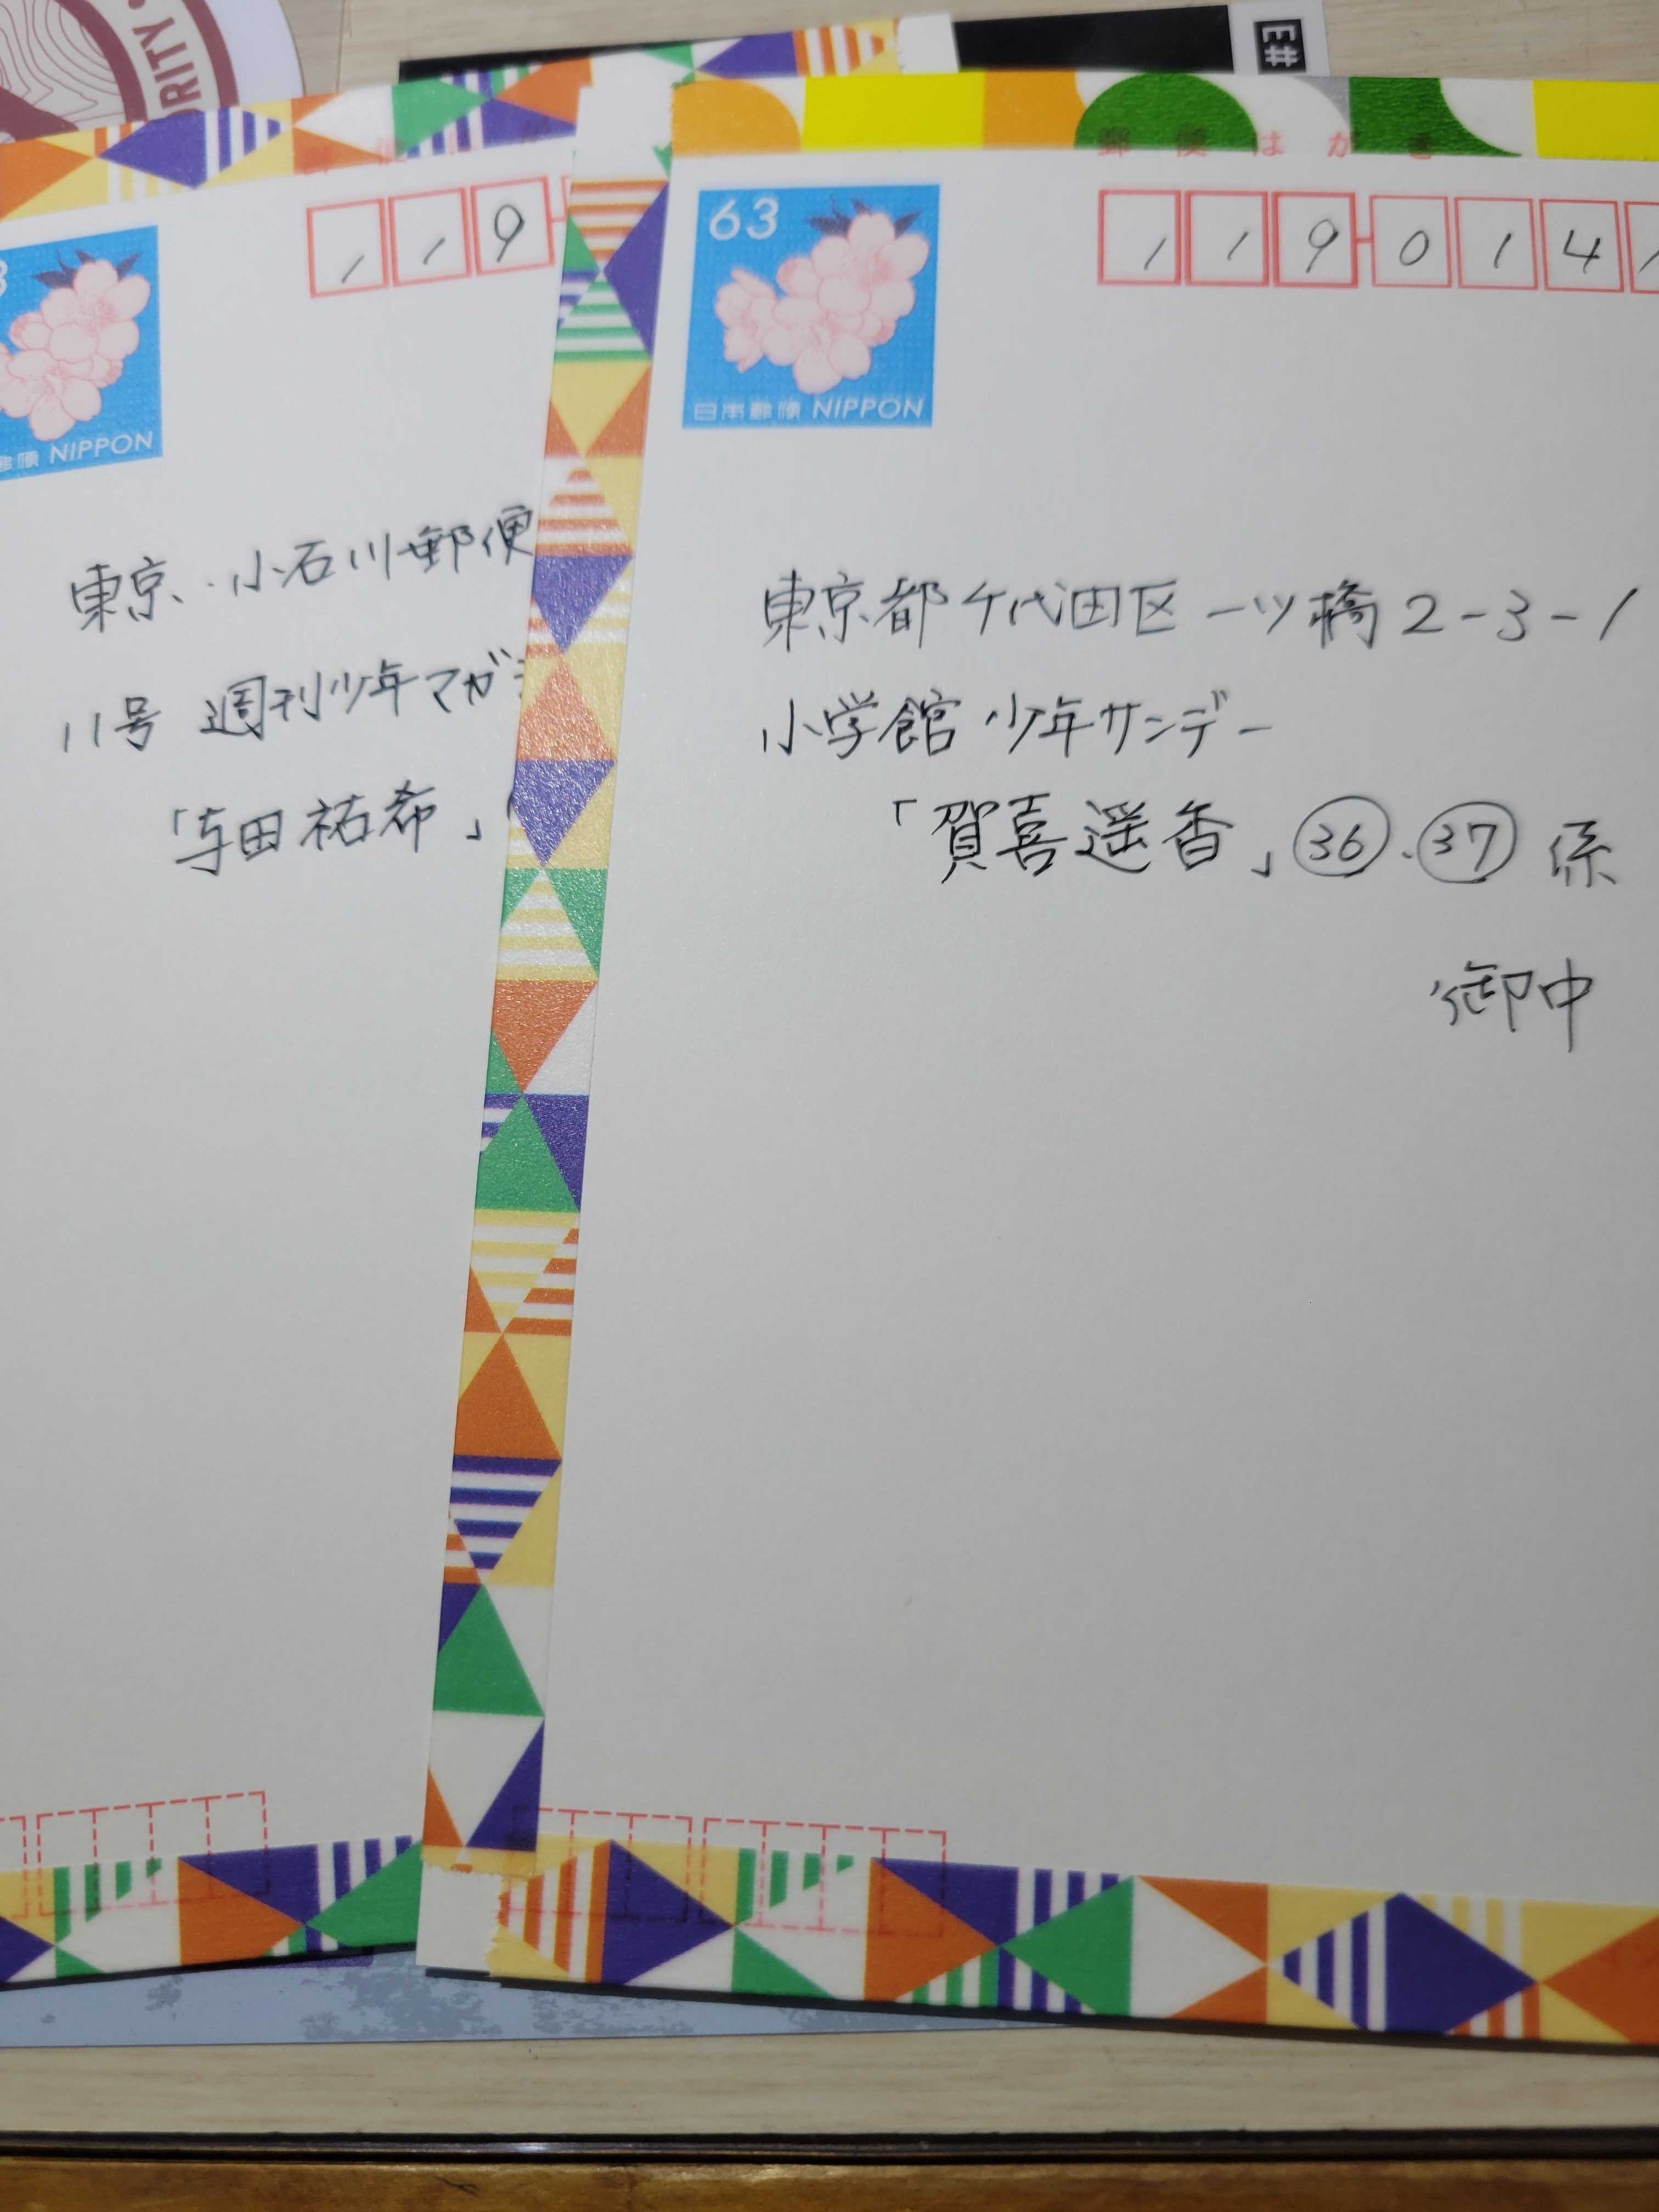 RITY
E#
郵便はがき
119
NIPPON
東京 小石川郵便
11号 週刊少年マガ
「与田祐希」
郵便はがき
63
119-014
日本郵便 NIPPON
東京都千代田区一ツ橋2-3-1
小学館 少年サンデー
「賀喜遥香」㊱.㊲係
御中